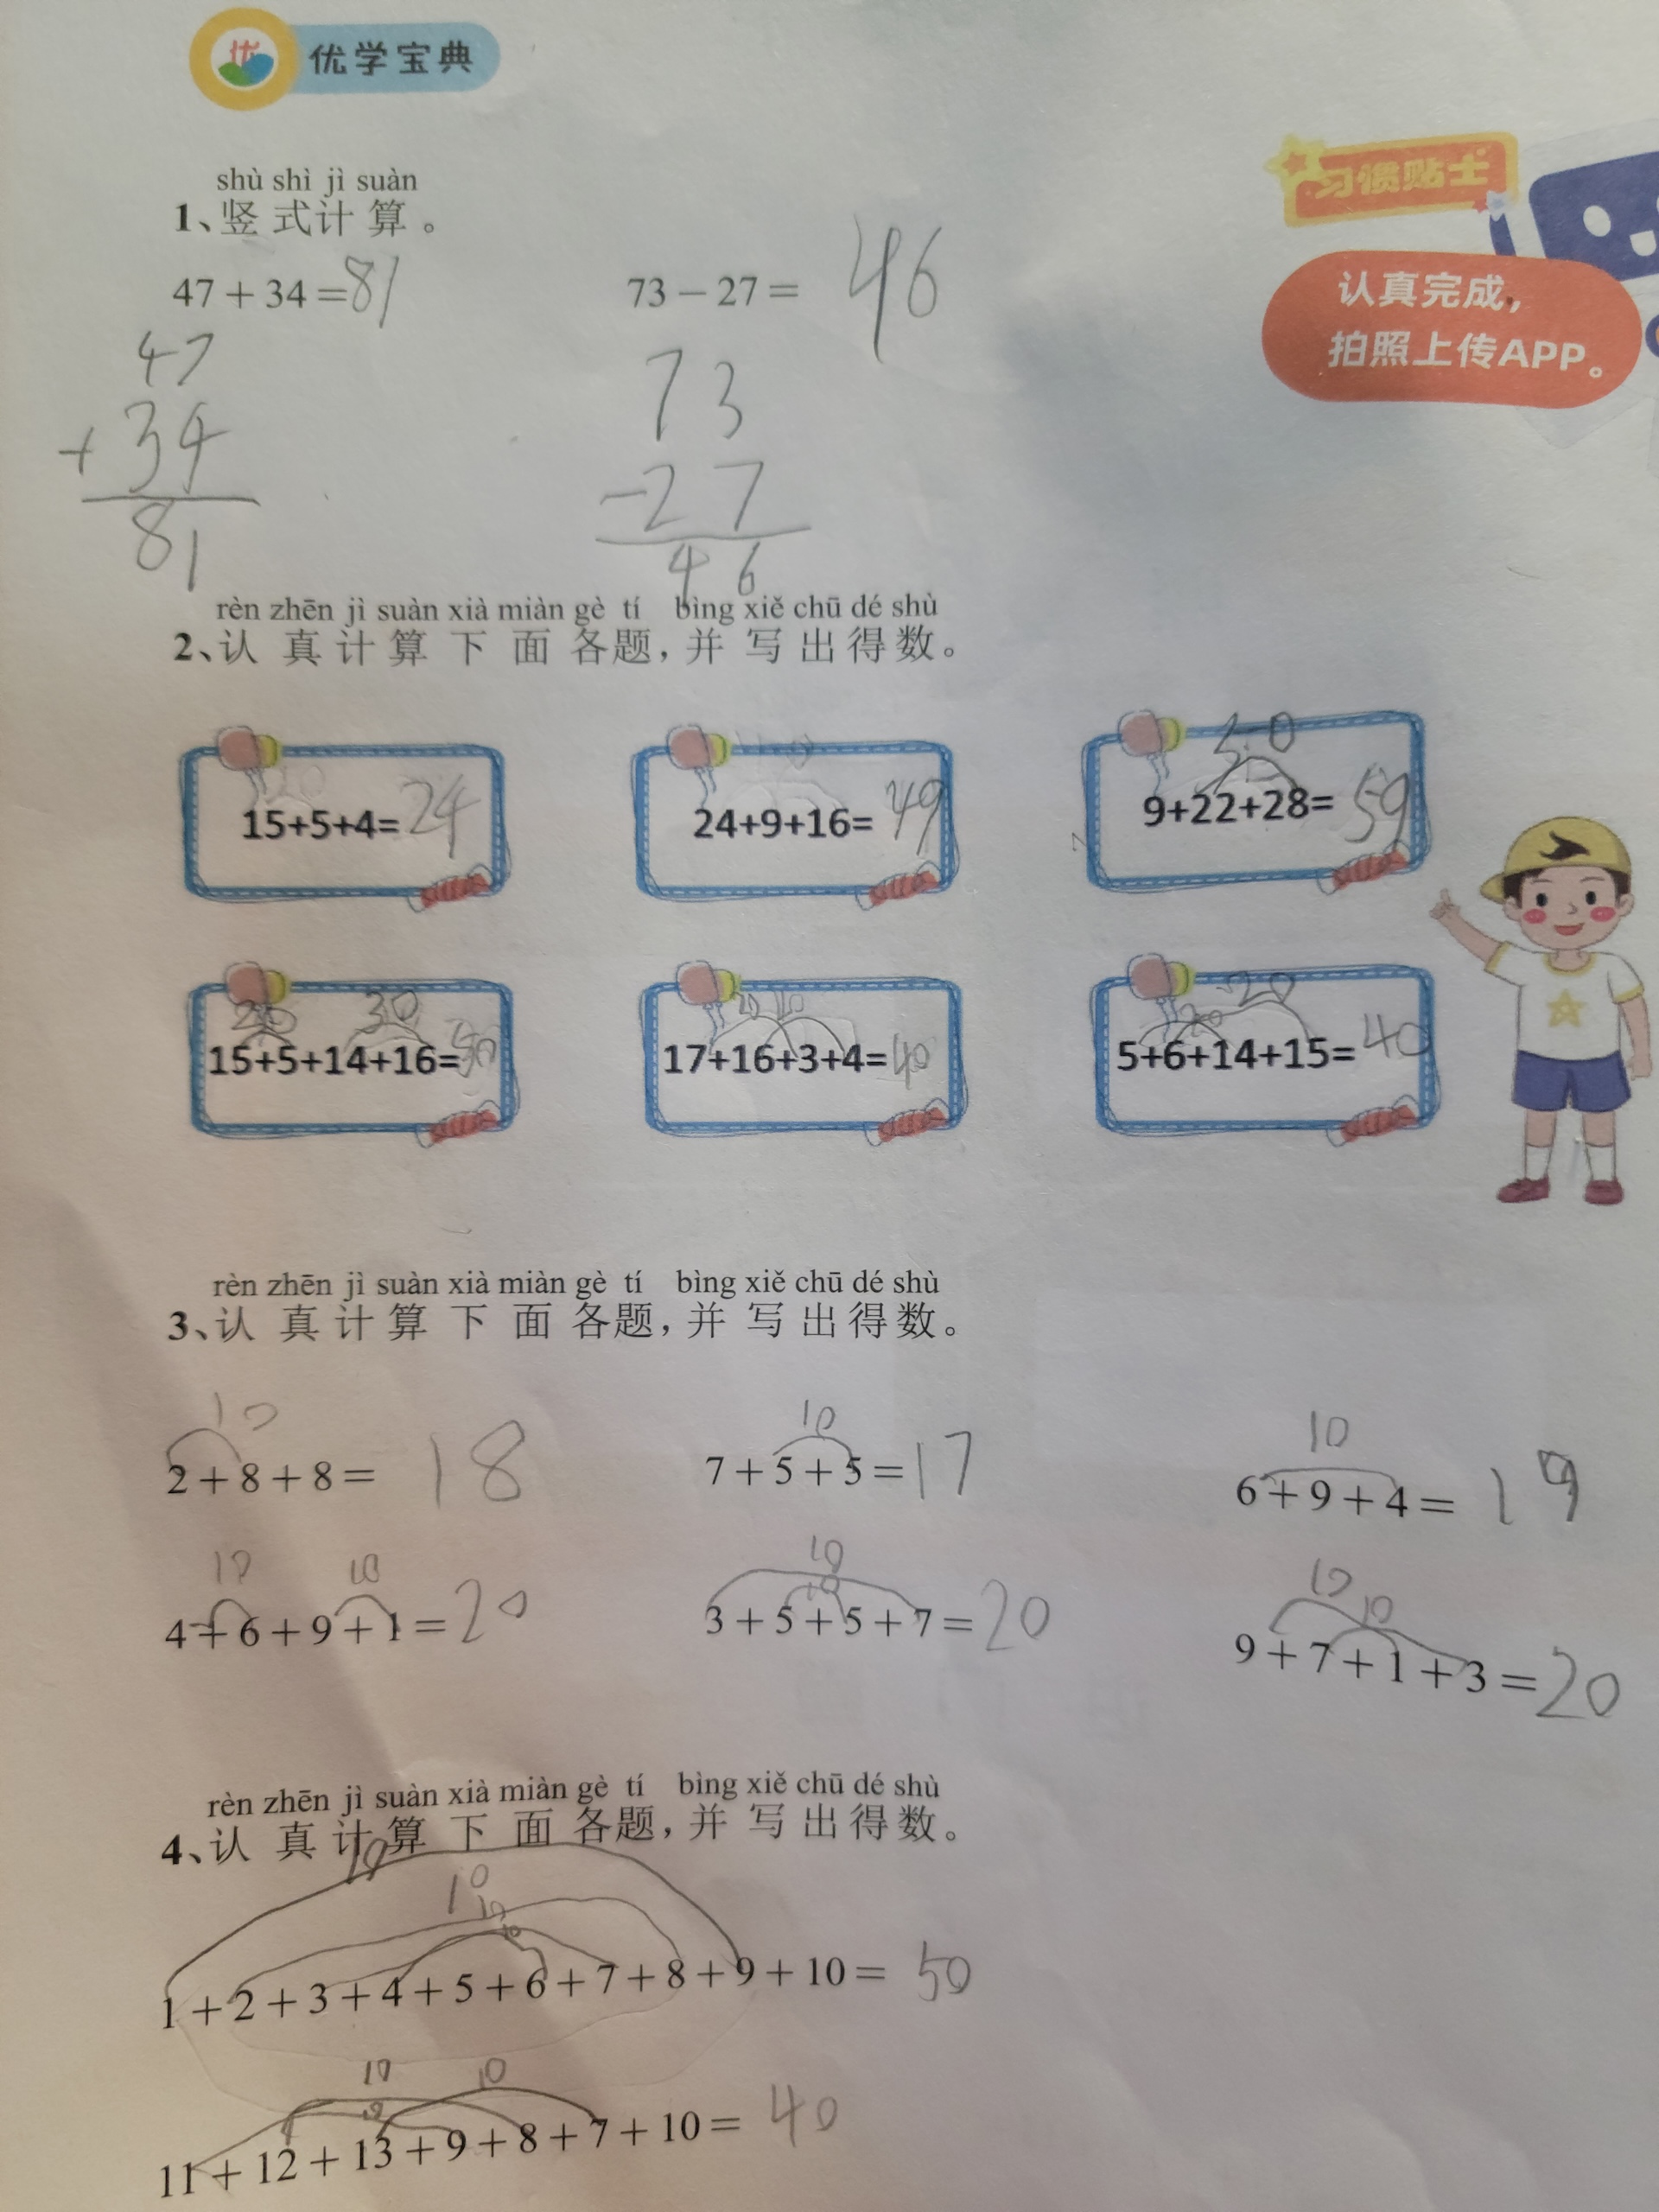 优学宝典
习惯贴士
认真完成，
拍照上传APP。
shù shì jì suàn
1、竖式计算。
47＋34＝81
73－27＝ 46
47
+34
81
73
-27
46
rèn zhēn jì suàn xià miàn gè tí bìng xiě chū dé shù
2、认真计算下面各题，并写出得数。
20
15+5+4=24
40
24+9+16=49
50
9+22+28=59
20 30
15+5+14+16=50
20 20
17+16+3+4=40
20 20
5+6+14+15=40
rèn zhēn jì suàn xià miàn gè tí bìng xiě chū dé shù
3、认真计算下面各题，并写出得数。
10
2＋8＋8＝ 18
10
7＋5＋5＝17
10
6＋9＋4＝ 19
10 10
4＋6＋9＋1＝20
10
10
3＋5＋5＋7＝20
10
10
9＋7＋1＋3＝20
rèn zhēn jì suàn xià miàn gè tí bìng xiě chū dé shù
4、认真计算下面各题，并写出得数。
10
10
10
10
1＋2＋3＋4＋5＋6＋7＋8＋9＋10＝ 50
10 10
11＋12＋13＋9＋8＋7＋10＝ 40